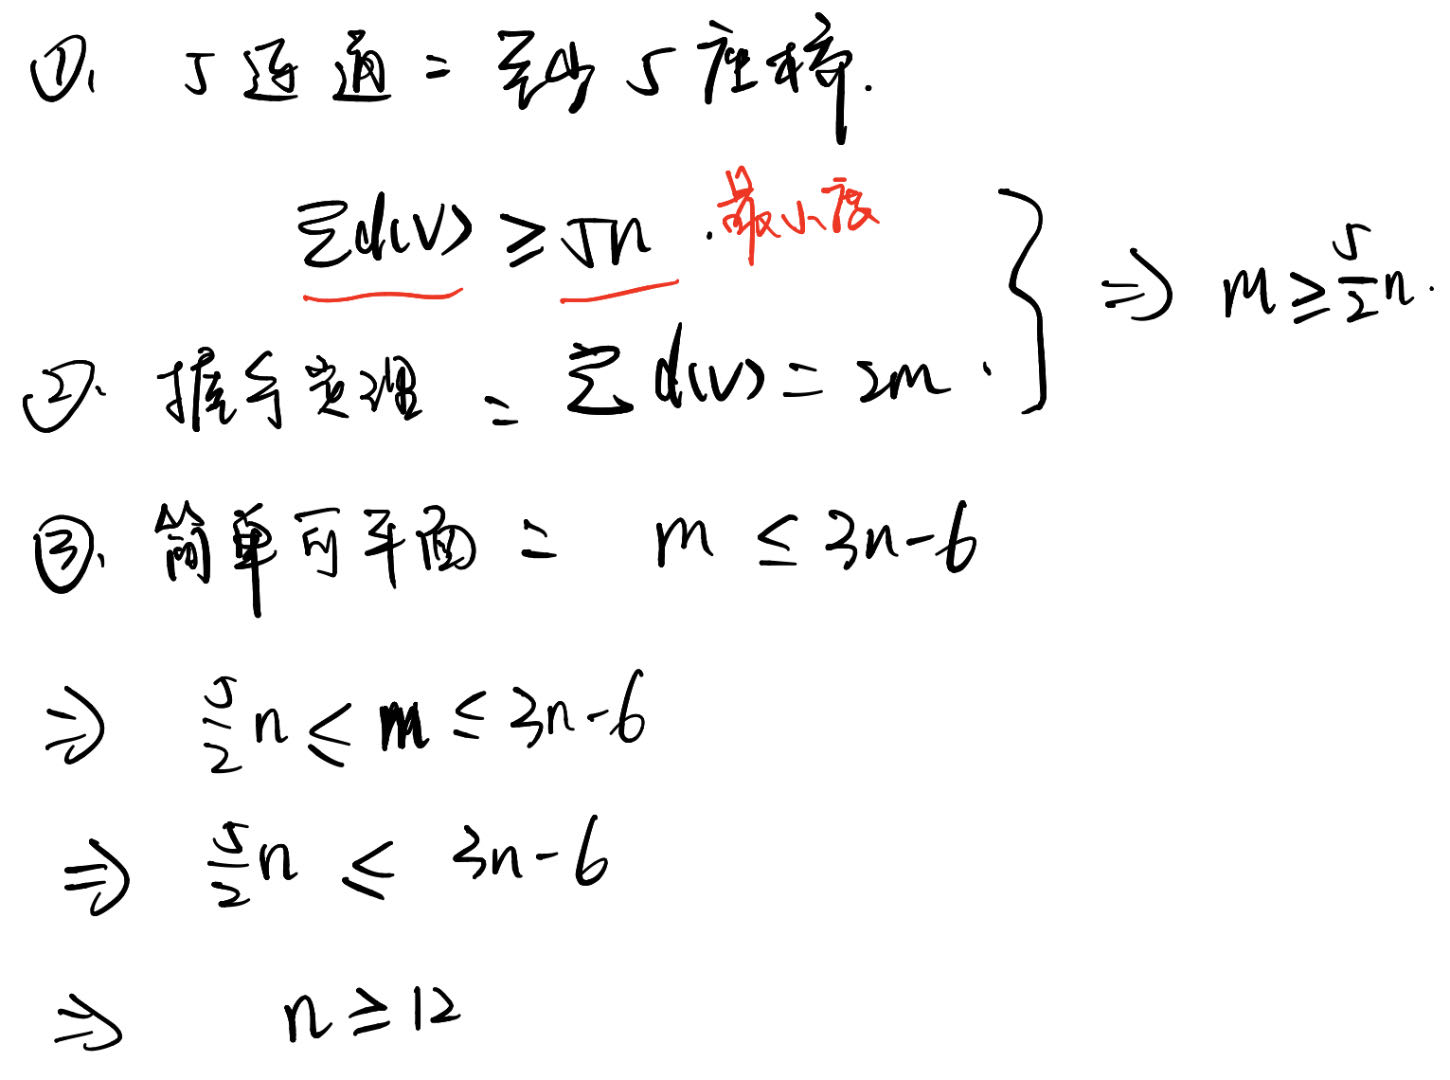 ①. 5连通 = 至少5座桥.
∑d(v) ≥ 5n . 最小度
②. 握手定理 = ∑d(v) = 2m . ⇒ m ≥ 5/2 n .
③. 简单可平面 = m ≤ 3n-6
⇒ 5/2 n ≤ m ≤ 3n-6
⇒ 5/2 n ≤ 3n-6
⇒ n ≥ 12